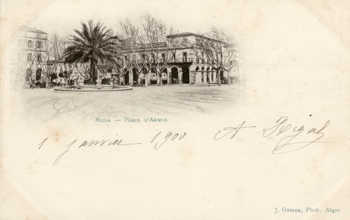 Blida — Place d'Armes
1 Janvier 1900 A Rigal
J. Geiser, Phot. Alger